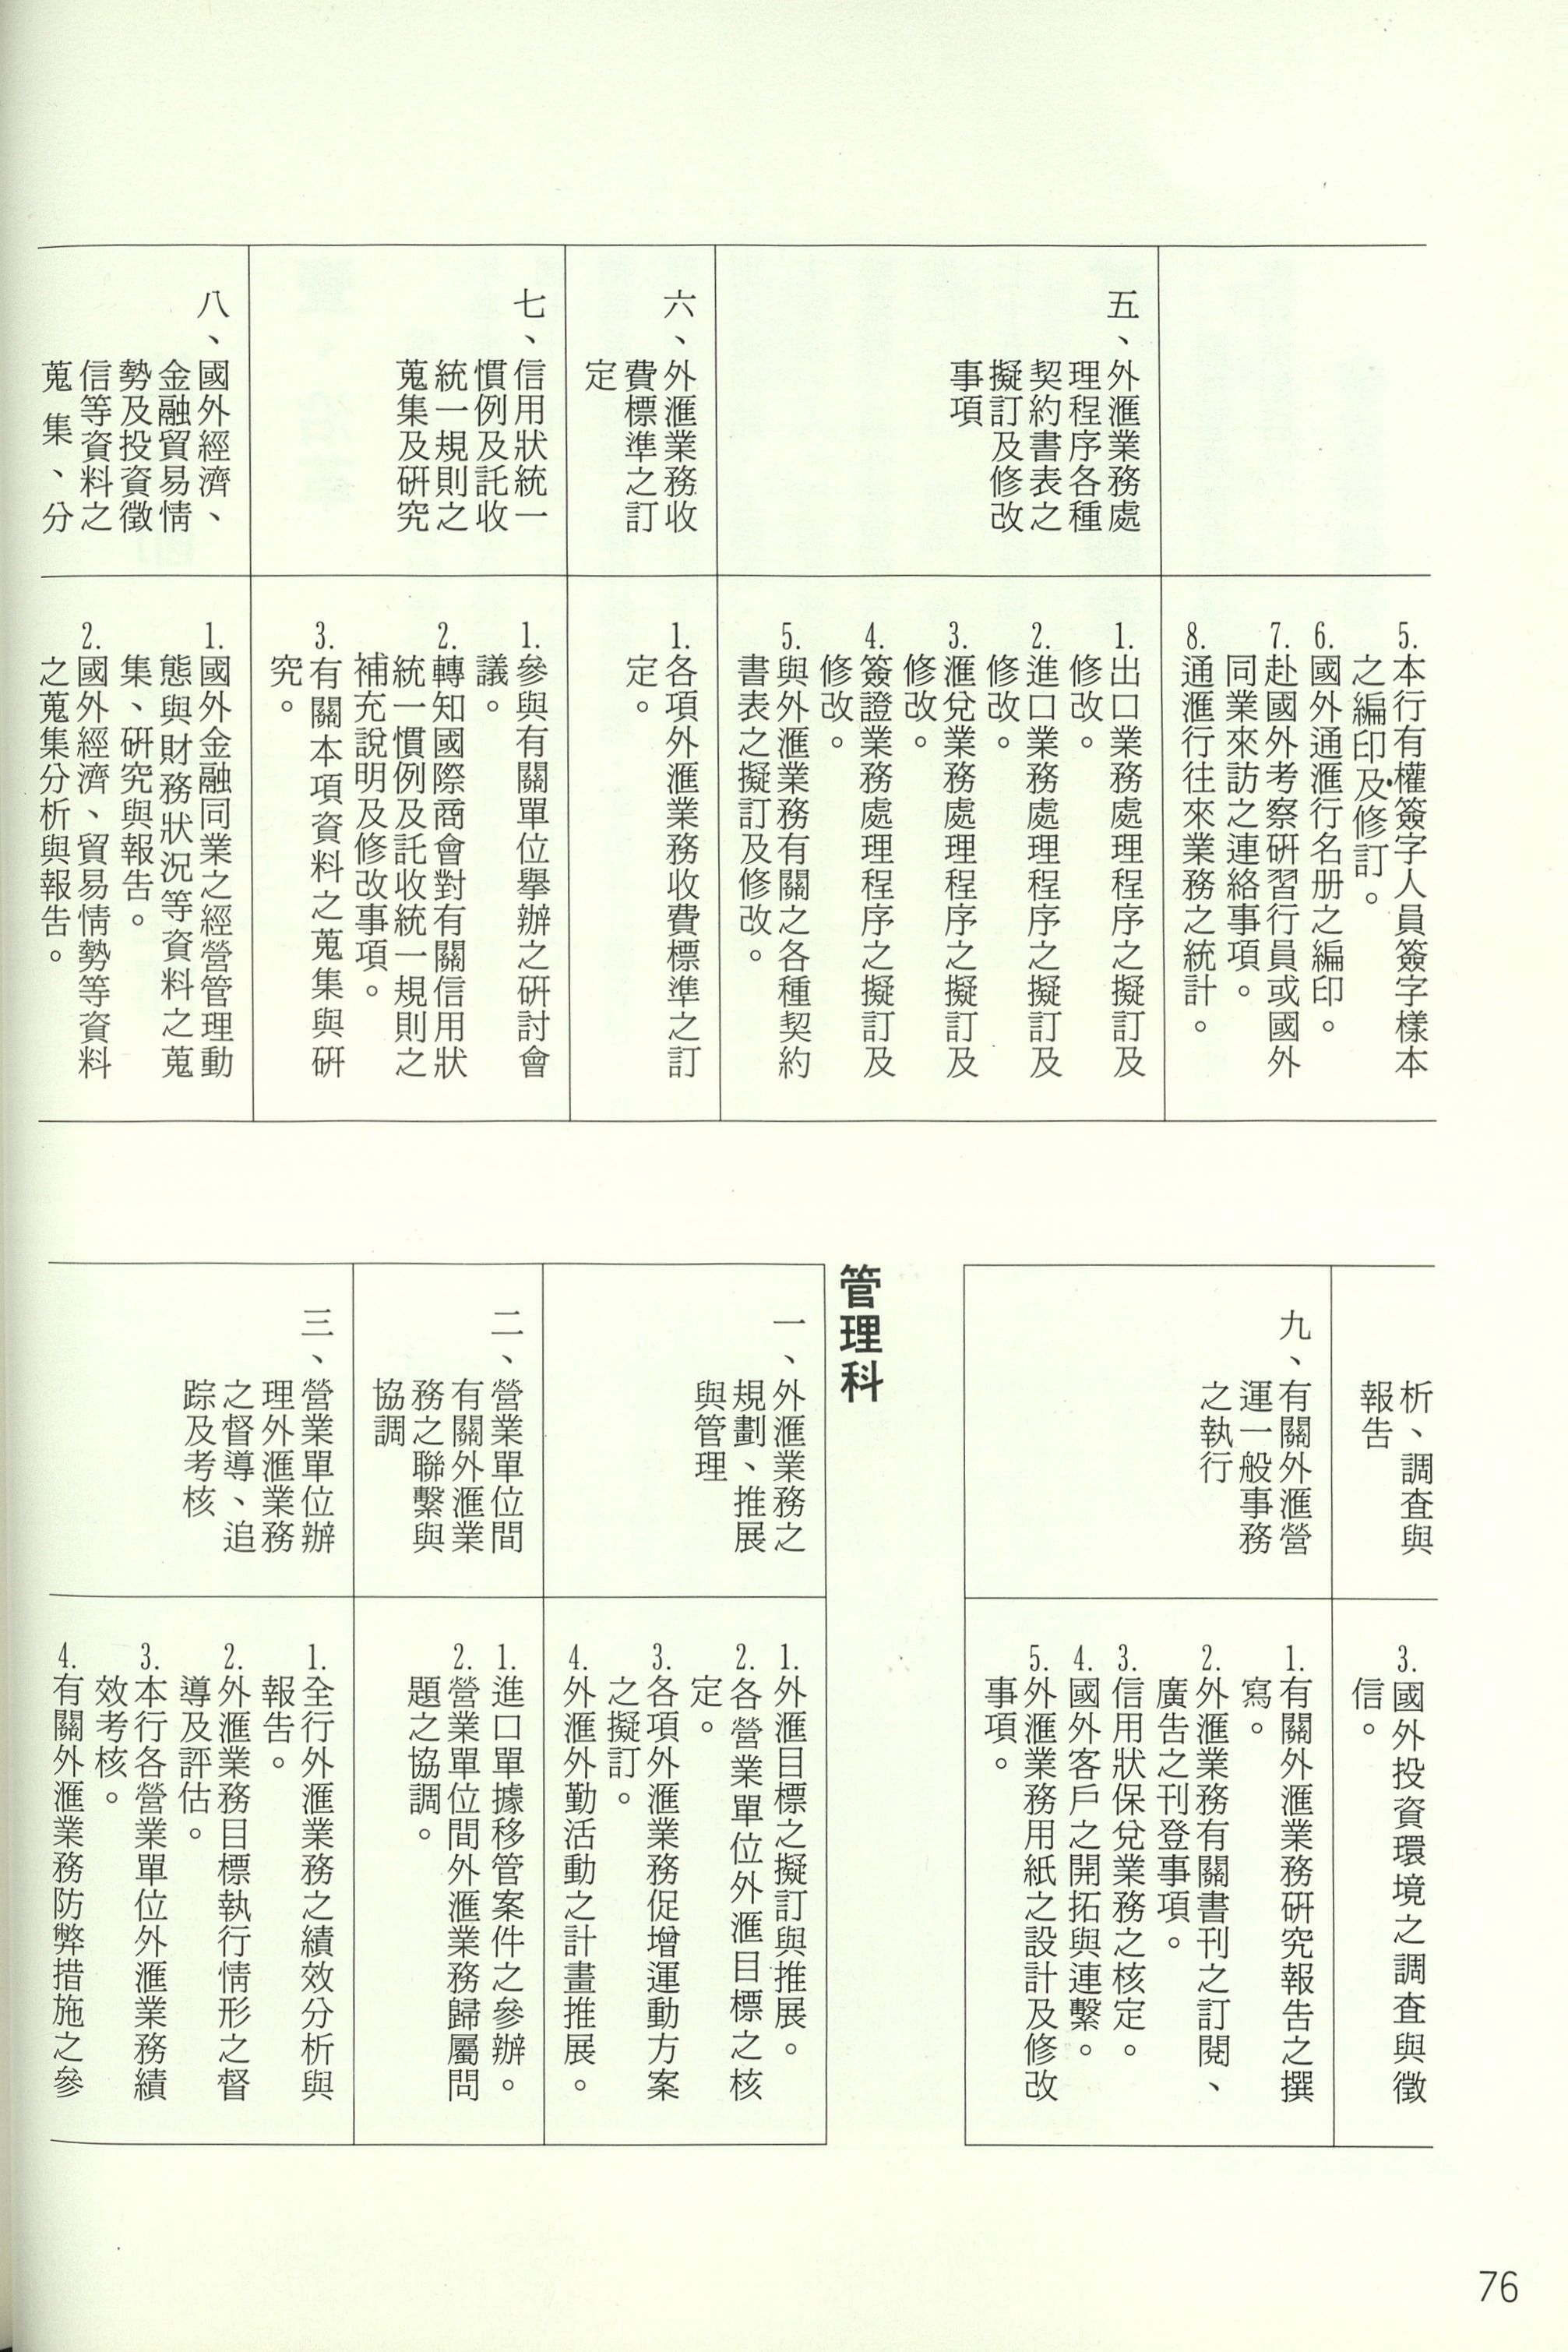 5.本行有權簽字人員簽字樣本
之編印及修訂。
6.國外通滙行名册之編印。
7.赴國外考察研習行員或國外
同業來訪之連絡事項。
8.通滙行往來業務之統計。
五、外滙業務處
理程序各種
契約書表之
擬訂及修改
事項
1.出口業務處理程序之擬訂及
修改。
2.進口業務處理程序之擬訂及
修改。
3.滙兌業務處理程序之擬訂及
修改。
4.簽證業務處理程序之擬訂及
修改。
5.與外滙業務有關之各種契約
書表之擬訂及修改。
六、外滙業務收
費標準之訂
定
1.各項外滙業務收費標準之訂
定。
七、信用狀統一
慣例及託收
統一規則之
蒐集及研究
1.參與有關單位擧辦之研討會
議。
2.轉知國際商會對有關信用狀
統一慣例及託收統一規則之
補充說明及修改事項。
3.有關本項資料之蒐集與研
究。
八、國外經濟、
金融貿易情
勢及投資徵
信等資料之
蒐集、分
1.國外金融同業之經營管理動
態與財務狀況等資料之蒐
集、研究與報告。
2.國外經濟、貿易情勢等資料
之蒐集分析與報告。
析、調查與
報告
3.國外投資環境之調查與徵
信。
九、有關外滙營
運一般事務
之執行
1.有關外滙業務研究報告之撰
寫。
2.外滙業務有關書刊之訂閱、
廣告之刊登事項。
3.信用狀保兌業務之核定。
4.國外客戶之開拓與連繫。
5.外滙業務用紙之設計及修改
事項。
管理科
一、外滙業務之
規劃、推展
與管理
1.外滙目標之擬訂與推展。
2.各營業單位外滙目標之核
定。
3.各項外滙業務促增運動方案
之擬訂。
4.外滙外勤活動之計畫推展。
二、營業單位間
有關外滙業
務之聯繫與
協調
1.進口單據移管案件之參辦。
2.營業單位間外滙業務歸屬問
題之協調。
三、營業單位辦
理外滙業務
之督導、追
踪及考核
1.全行外滙業務之績效分析與
報告。
2.外滙業務目標執行情形之督
導及評估。
3.本行各營業單位外滙業務績
效考核。
4.有關外滙業務防弊措施之參
76